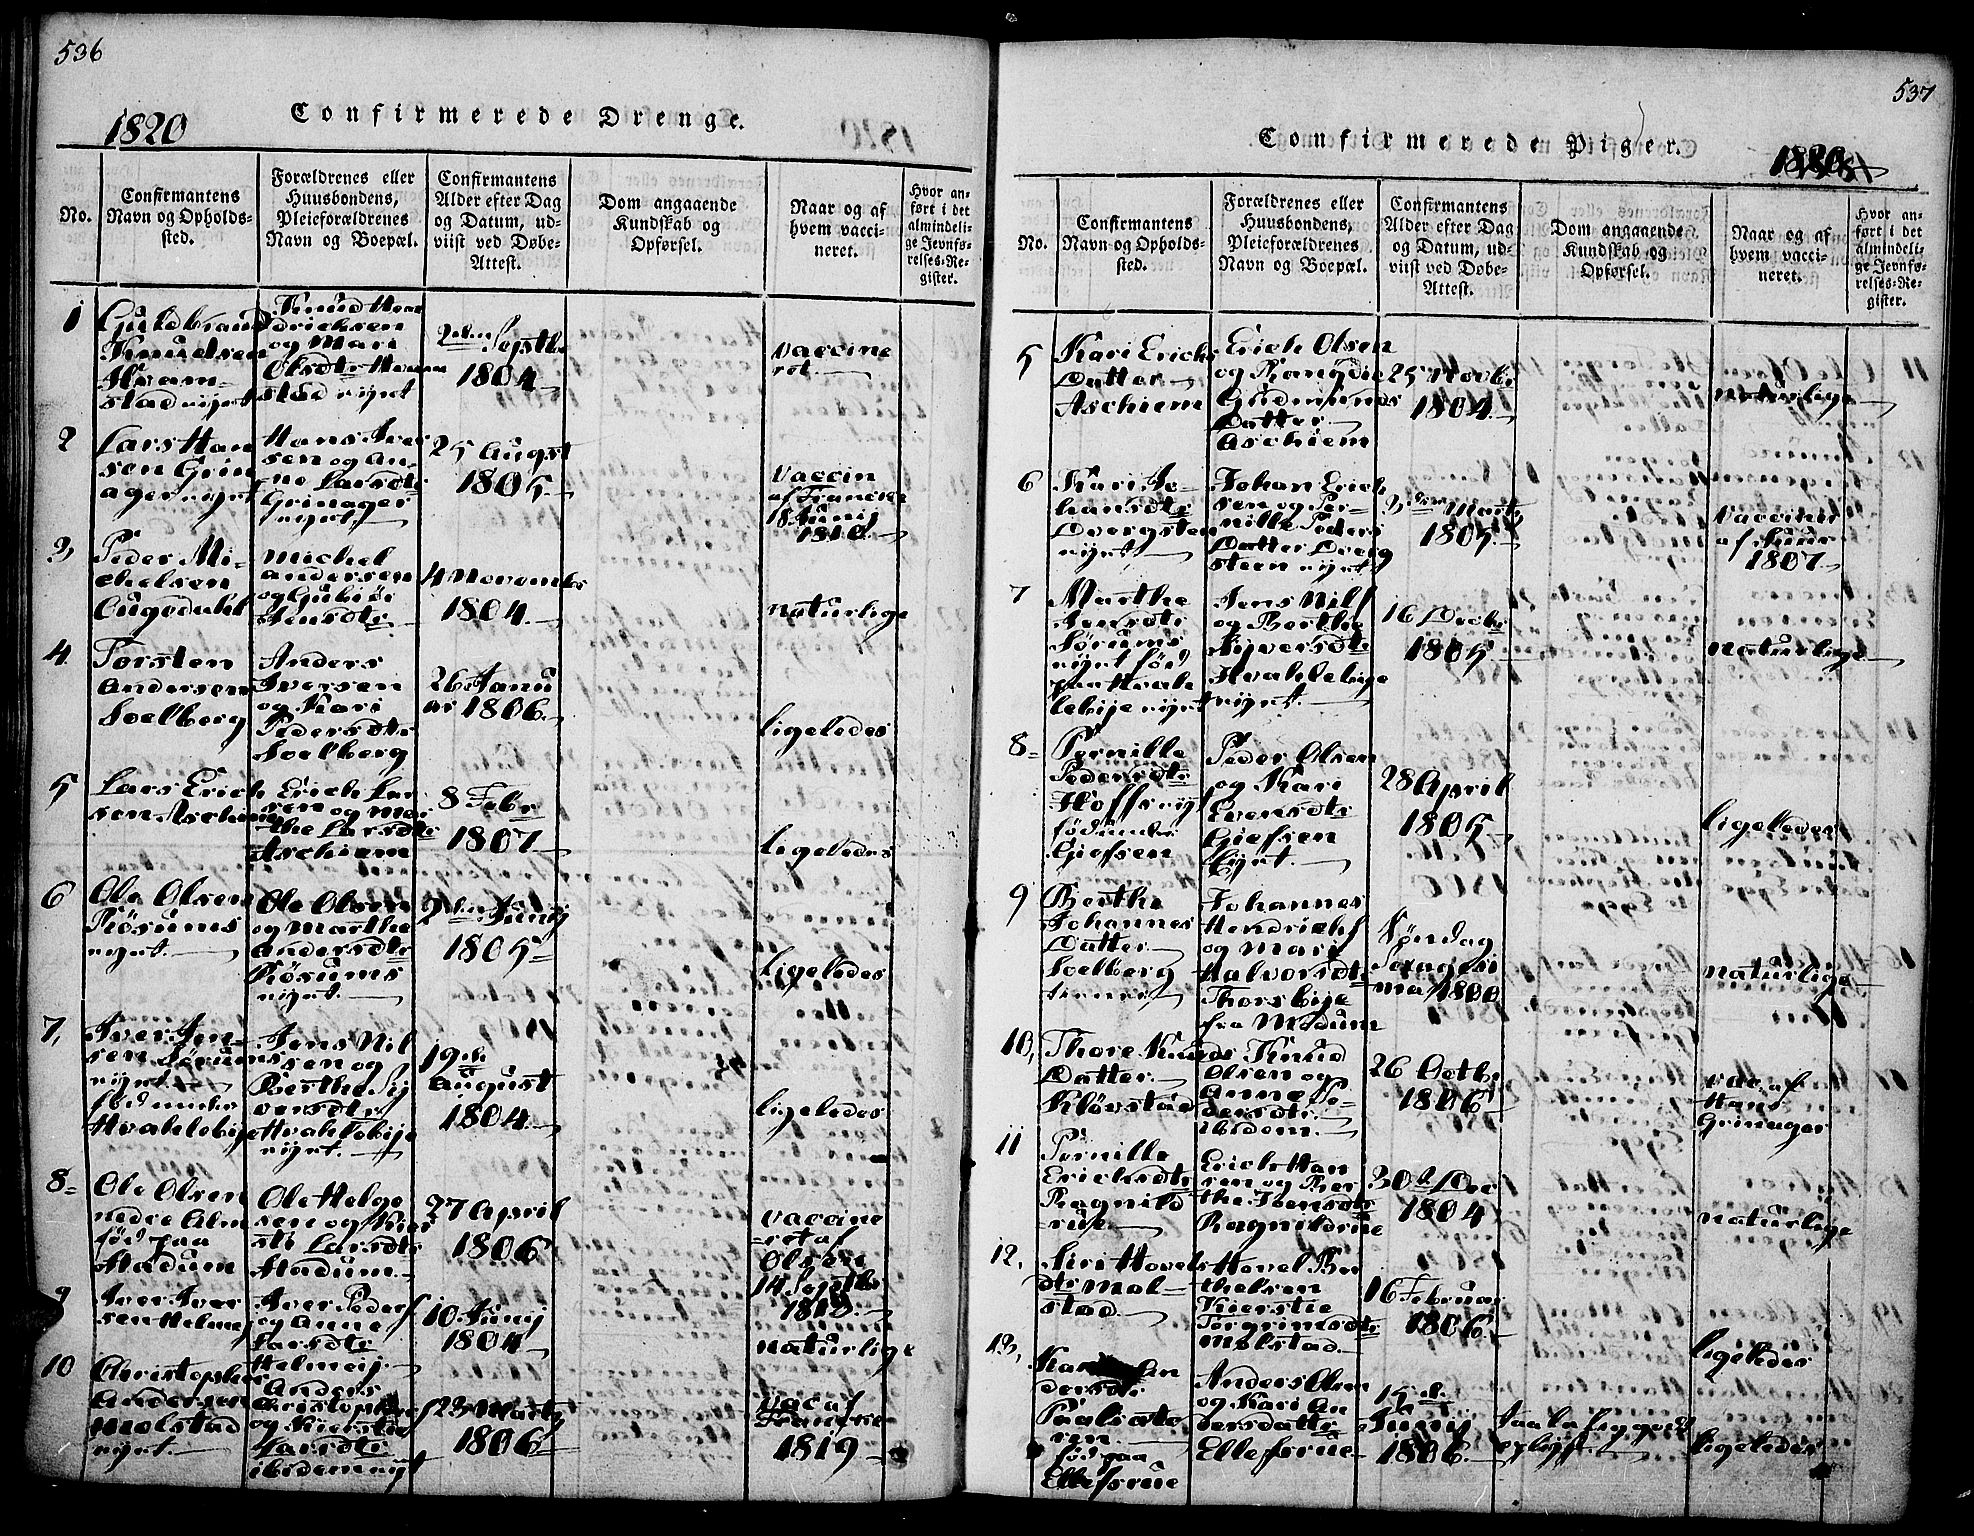 536
1820
Confirmerede Drenge.
No.
Confirmantens
Navn og Opholds-
sted.
Forældrenes eller
Huusbondens,
Pleieforældrenes
Navn og Boepæl.
Confirmantens
Alder efter Dag
og Datum, ud-
viist ved Døbe-
Attest.
Dom angaaende
Kundskab og
Opførsel.
Naar og af
hvem vacci-
neret.
Hvor an-
ført i det
almindeli-
ge Jevnfø-
relses-Re-
gister.
1
Guldbrand
Knudsen
Hvam-
stad
Knud Hen
drichsen
og Mari
Olsdtr Hvam
stad
2den Septbr
1804
vaccine
ret
2
Lars Han
sen Grin
ager
Hans Iver
sen og An-
ne Larsdtr
Grinager
25 Augst
1805
vaccin
af
8 Junij
1810
3
Peder Mi-
chelsen
Michel
Andersen
og Gubiør
Jensdtr
4 Novembr
1804
naturlige
4
Torsten
Andersen
Soelberg
Anders
Iversen
og Kari
Pedersdtr
Soelberg
26 Janu
ar 1806
ligeledes
5
Lars Erich
sen Aschiem
Erich Lar
sen og Mar
the Larsdtr
Aschiem
8 Febr
1807
ligeledes
6
Ole Olsen
Røsums
Ole Olsen
og Marthe
Andersdtr
Røsums
Junij
1805
ligeledes
7,
Iver Jen-
sen Sørums
fød under
Hvalelebije
Jens Nil
sen og
Berthe Sij
versdtr
Hvalelebije
19de
August
1804
ligeledes
8
Ole Olsen
nedre Alm
fød paa
Hadum
Ole Helge
sen og Kier
sti Larsdtr
Hadum
27 April
1806
vaccine
ret af
Olsen
14 Septbr
9
Iver Iver
sen Helmej
Iver Peders
og Anne
Larsdtr
Helmeij
10 Junij
1804
naturlige
10
Christopher
Andersen
Molstad
Anders
Christophers
og Kierstie
Larsdtr
ibidem
23 Martij
1806
vac af
1819
537
Confirmerede Piger.
No.
Confirmantens
Navn og Opholds-
sted.
Forældrenes eller
Huusbondens,
Pleieforældrenes
Navn og Boepæl.
Confirmantens
Alder efter Dag
og Datum, ud-
viist ved Døbe-
Attest.
Dom angaaende
Kundskab og
Opførsel.
Naar og af
hvem vacci-
neret.
Hvor an-
ført i det
almindeli-
ge Jevnfø-
relses-Re-
gister.
5
Kari Erichs
Datter
Aschiem
Erich Olsen
og Rangdie
Gudmunds
Datter
Aschiem
25 Novbr
1804
naturlige
6
Kari Jo-
hansdtr
Dvergsten
Johan Erich
sen og Per-
nille Peders
Datter Dverg
steen
Martij
1805
vaccineret
af Lund
1807
7
Marthe
Jensdtr
Sørums
fød
paa Hvale
lebije
Jens Nils
og Berthe
Sijversdtr
Hvalelebije
16 Decbr
1805
naturlige
8
Pernille
Pedersdtr
Hoffs
fød under
Giefsen
Peder Olsen
og Kari
Evensdtr
Giefsen
28 April
1805
ligeledes
9
Berthe
Johannes
Datter
Soelberg
Johannes
Hendrichs
og Mari
Halvorsdtr
Thorsbije
fra Modum
Søndag
Sexagesi
ma
naturlige
10,
Thore Knuds
Datter
Kløvstad
Knud
Olsen og
Anne Pe-
dersdtr
ibidem
26 Octbr
1806
vac af
Hans
Grinager
11
Pernille
Erichsdtr
Ragnild
rue
Erich Han
sen og Ber
the Jensdtr
Ragnildrue
30 Dec
1804
naturlige
12,
Siri Hovels
dtr Mol-
stad
Hovel Ber
thelsen
Kierstie
Torgrimsdtr
Molstad
16 Februar
1806
ligeledes
13,
Kari An
dersdtr
fød paa
Ellefsrue
Anders Olsen
og Kari An
dersdatter
Ellefsrue
15de
Junij
1806
ligeledes